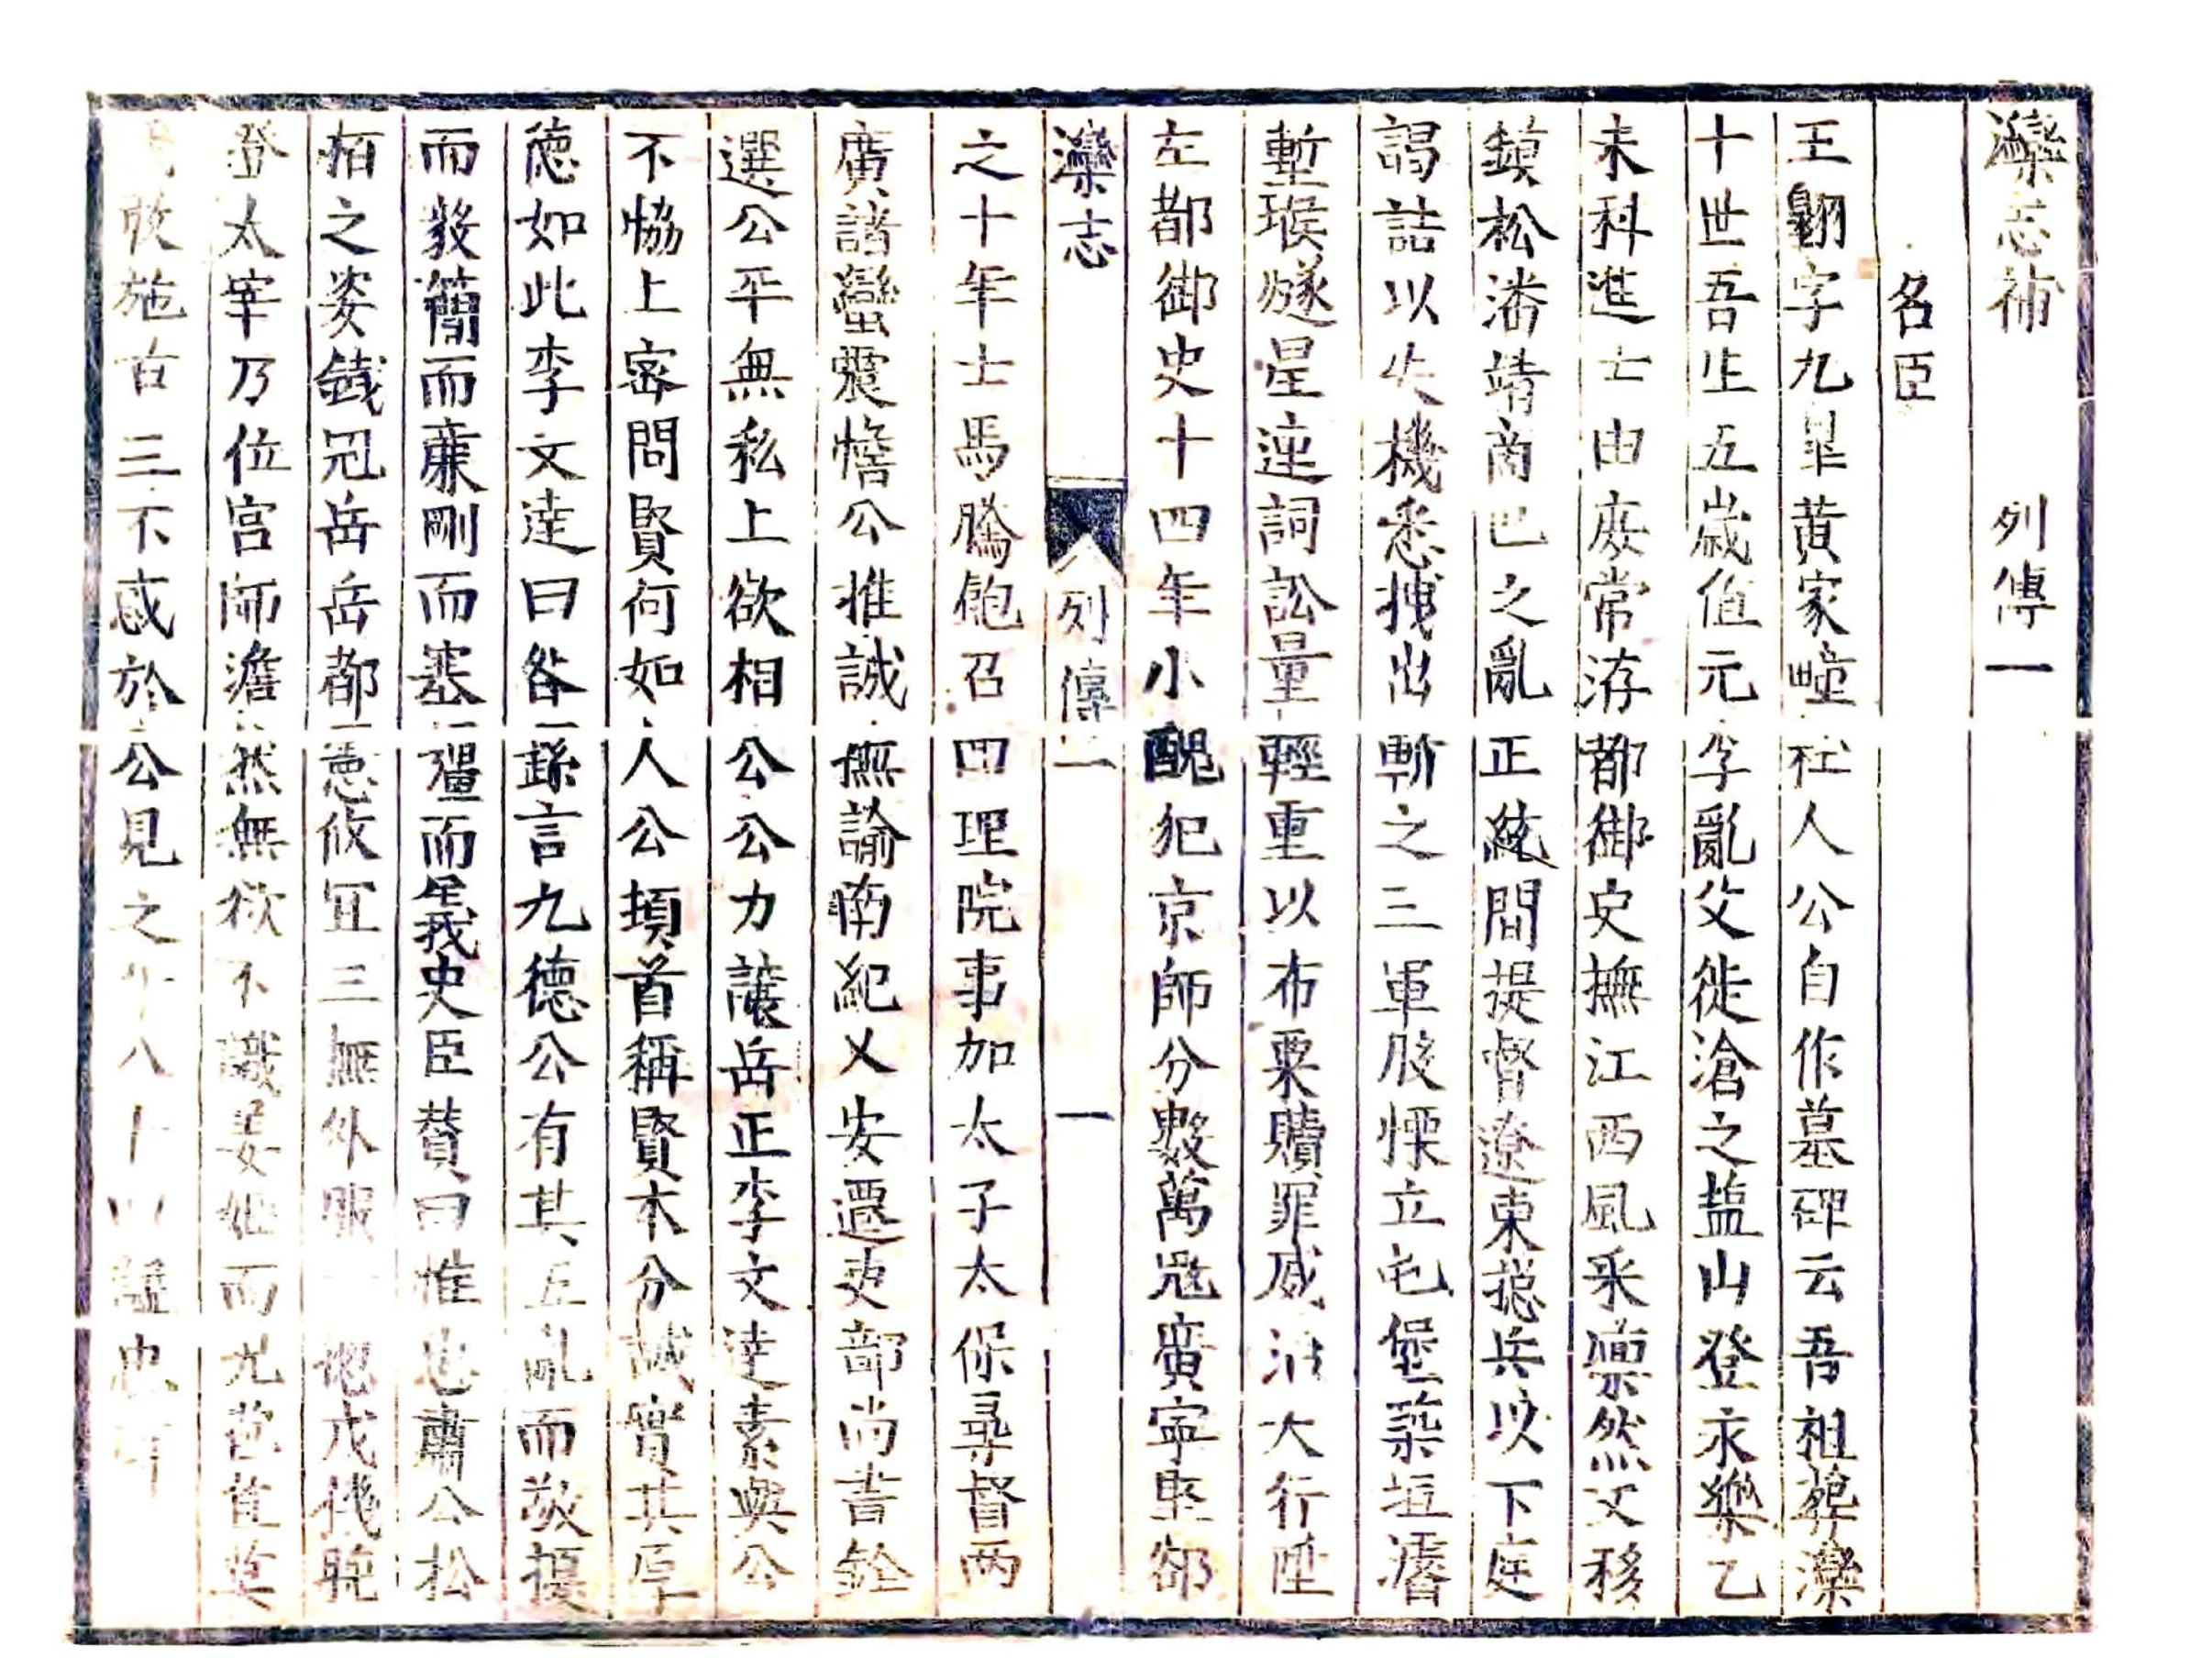 灤志補　列傳一
名臣
王翺字九皐黄家疃社人公自作墓碑云吾祖葬灤
十世吾生五歲值元孛亂父徙滄之盐山登永樂乙
未科進士由庶常洊都御史撫江西風采凛然又移
鎮松潘靖商巴之亂正統間提督遼東揔兵以下庭
謁詰以失機悉拽出斬之三軍股慄立屯堡築垣濬
塹堠燧星連詞訟量輕重以布粟贖罪威沾大行陞
左都御史十四年小醜犯京師分數萬冦廣寧堅郤
灤志　列傳一　一
之十年士馬騰飽召回理院事加太子太保尋督两
廣諸蠻震慴公推誠撫諭南紀乂安遷吏部尚書銓
選公平無私上欲相公公力讓岳正李文達素與公
不恊上密問賢何如人公頓首稱賢本分誠實其厚
德如此李文達曰咎繇言九德公有其五亂而敬擾
而毅簡而廉剛而塞彊而義史臣賛曰惟忠肅公松
栢之姿鉞冠岳岳都憲攸宜三撫外服揔戎機
登太宰乃位宫師澹然無欲不識姜姬而尤苞苴莫
敢施古三不惑於公見之年八十以謚忠